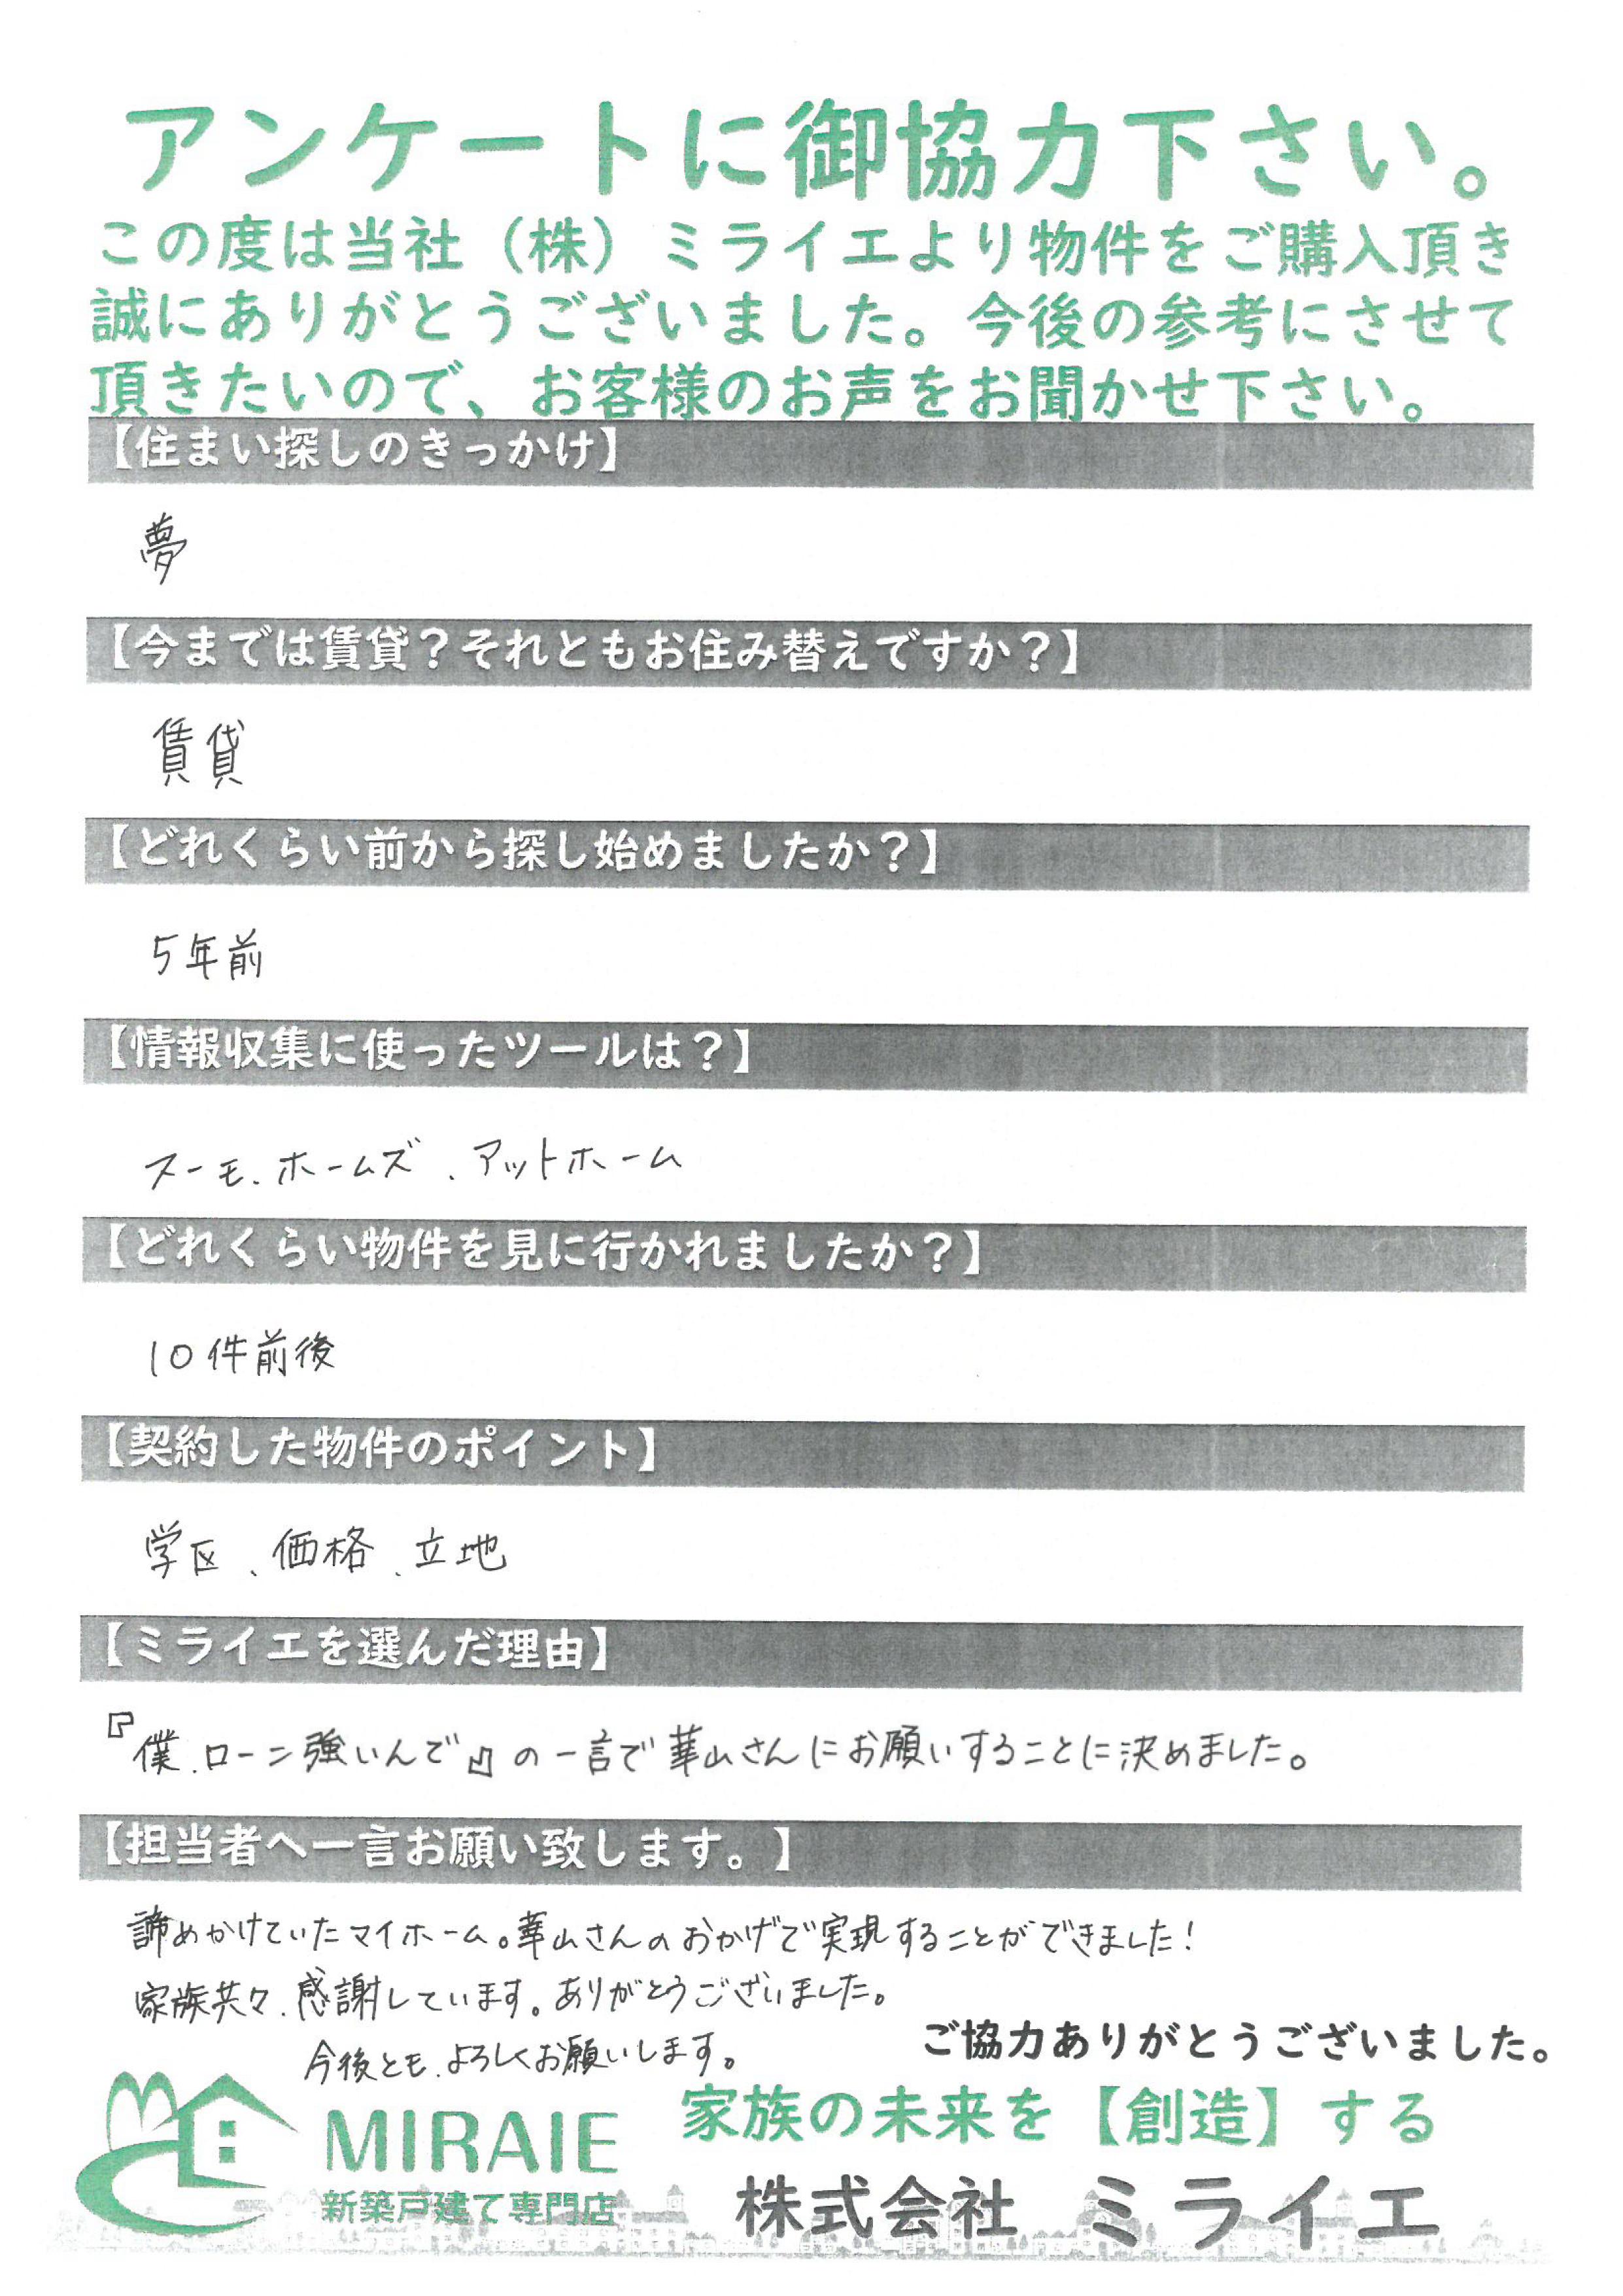 アンケートに御協力下さい。
この度は当社（株）ミライエより物件をご購入頂き
誠にありがとうございました。今後の参考にさせて
頂きたいので、お客様のお声をお聞かせ下さい。
【住まい探しのきっかけ】
夢
【今までは賃貸？それともお住み替えですか？】
賃貸
【どれくらい前から探し始めましたか？】
5年前
【情報収集に使ったツールは？】
スーモ、ホームズ、アットホーム
【どれくらい物件を見に行かれましたか？】
10件前後
【契約した物件のポイント】
学区、価格、立地
【ミライエを選んだ理由】
『僕、ローン強いんで』の一言で華山さんにお願いすることに決めました。
【担当者へ一言お願い致します。】
諦めかけていたマイホーム。華山さんのおかげで実現することができました！
家族共々、感謝しています。ありがとうございました。
今後とも、よろしくお願いします。
ご協力ありがとうございました。
MIRAIE
新築戸建て専門店
家族の未来を【創造】する
株式会社 ミライエ